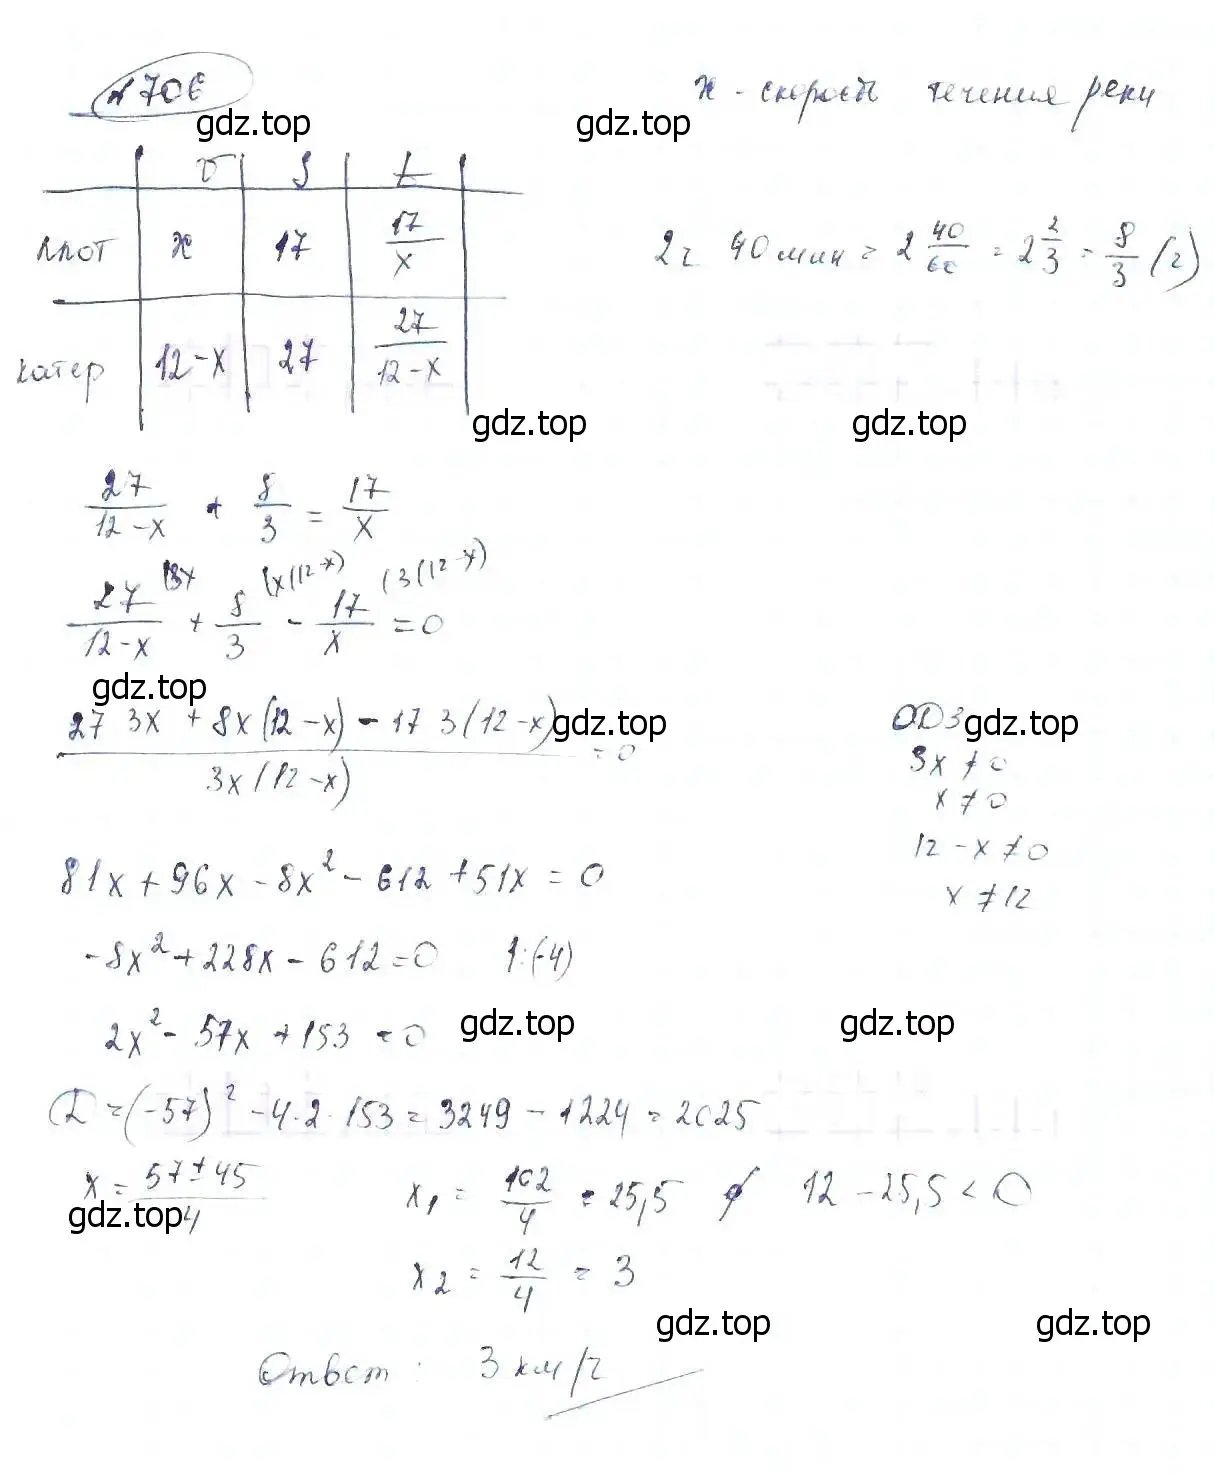 № 706
x - скорость течения реки
gdz.top gdz.top
v S t
плот x 17 17/x
2ч 40 мин = 2 40/60 = 2 2/3 = 8/3 (ч)
катер 12-x 27 27/(12-x)
gdz.top gdz.top
27/(12-x) + 8/3 = 17/x
27/(12-x) (3x + 8/3 (x(12-x) - 17/x (3(12-x) = 0
gdz.top
(27 3x + 8x(12-x) - 17 3(12-x))/(3x(12-x)) = 0
gdz.top
ОДЗ gdz.top
3x ≠ 0
x ≠ 0
12 - x ≠ 0
x ≠ 12
81x + 96x - 8x² - 612 + 51x = 0
-8x² + 228x - 612 = 0 |:(-4)
2x² - 57x + 153 = 0
gdz.top gdz.top
D = (-57)² - 4·2·153 = 3249 - 1224 = 2025
x = (57 ± 45)/4
gdz.top
x₁ = 102/4 = 25,5 ∅ 12 - 25,5 < 0
x₂ = 12/4 = 3
gdz.top gdz.top
Ответ: 3 км/ч